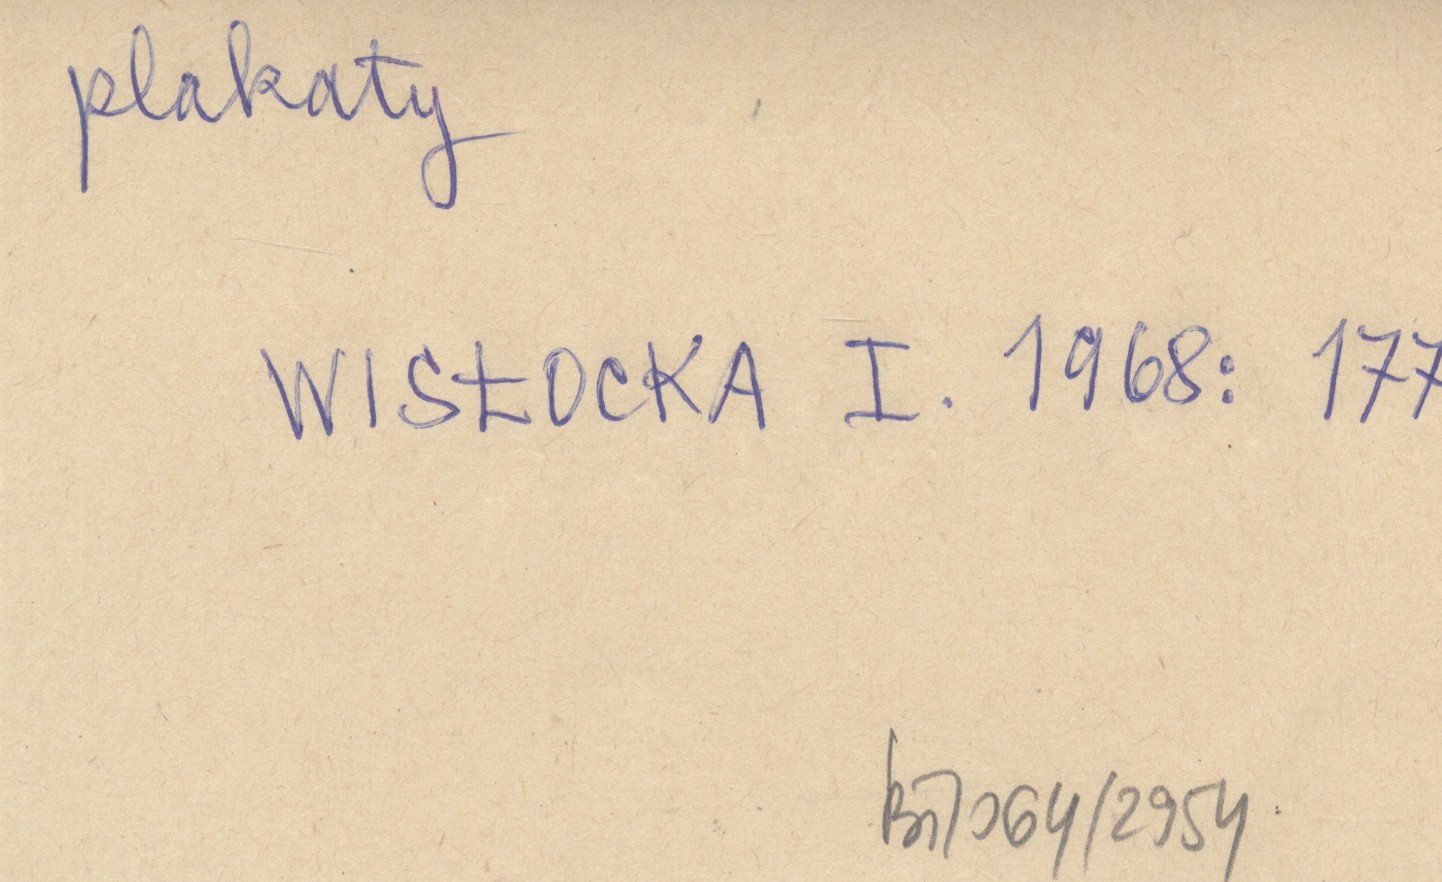 plakaty
WISŁOCKA I. 1968: 177
064/2954